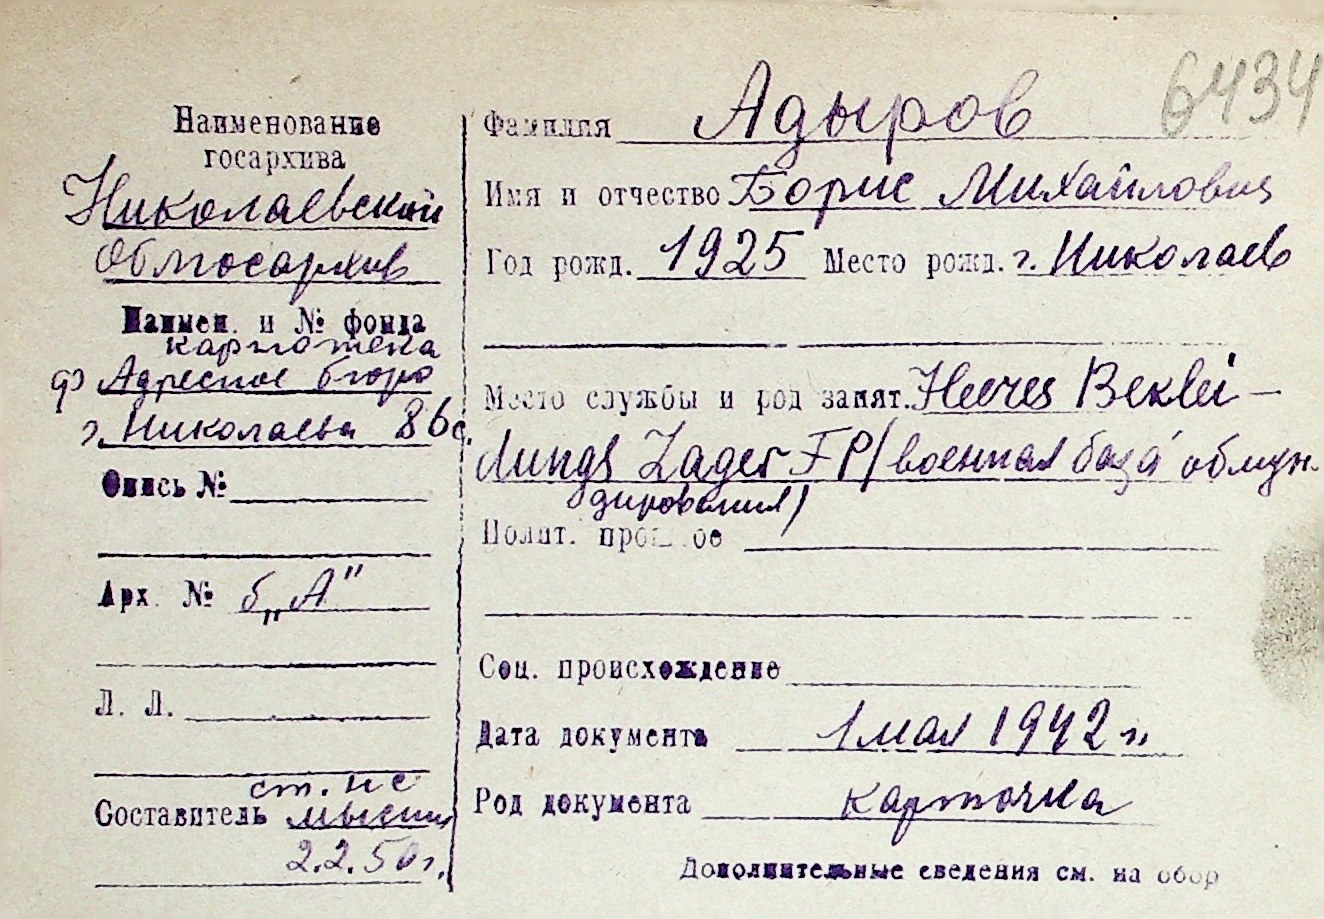 6434
Наименование
госархива
Николаевский
Облгосархив
Наимен. и № фонда
картотека
ф Адресное бюро
г. Николаева 86с.
Опись №
Арх. № б „А"
Л. Л.
ст. нс
Составитель
2.2.50г.
Фамилия Адыров
Имя и отчество Борис Михайлович
Год рожд. 1925 Место рожд. г. Николаев
Место службы и род занят. Heeres Beklei-
dungs Lager FP/военная база обмун-
дирования/
Полит. прошлое
Соц. происхождение
Дата документа 1 мая 1942 г.
Род документа карточка
Дополнительные сведения см. на обор